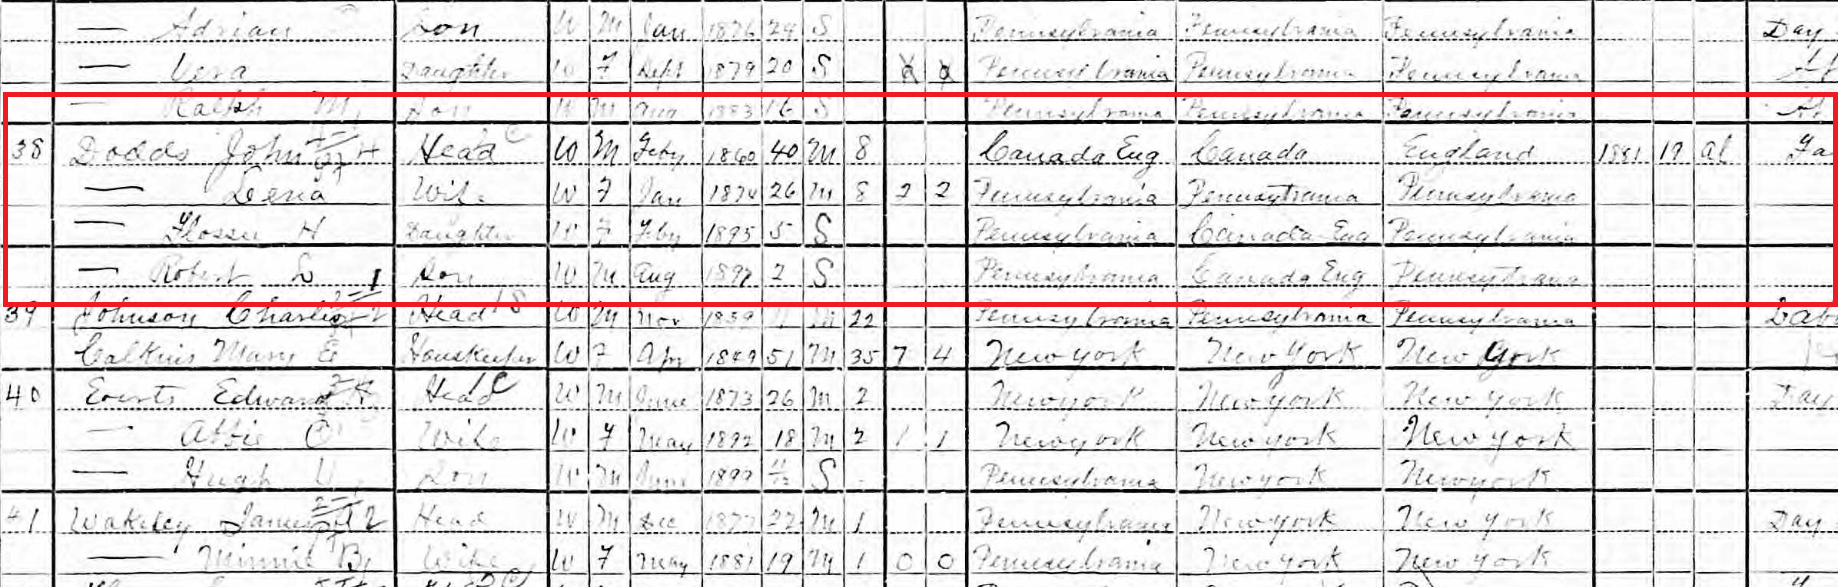 — Adrian Son W M Jan 1876 24 S Pennsylvania Pennsylvania Pennsylvania Day
— Daughter W F Sept 1879 20 S Pennsylvania Pennsylvania Pennsylvania
— Ralph M Son W M Aug 1883 16 S Pennsylvania Pennsylvania Pennsylvania
38 Dodds John H Head W M Feby 1860 40 M 8 Canada Eng Canada England 1881 19 al Fa
— Lena Wife W F Jan 1874 26 M 8 2 2 Pennsylvania Pennsylvania Pennsylvania
— Flossie H Daughter W F Feby 1895 5 S Pennsylvania Canada Eng Pennsylvania
— Robert L Son W M Aug 1897 2 S Pennsylvania Canada Eng Pennsylvania
39 Johnson Charles Head W M Nov 1859 M 22 Pennsylvania Pennsylvania Pennsylvania Labo
Calkins Mary E Housekeeper W F Apr 1849 51 M 35 7 4 New York New York New York
40 Everts Edward Head W M June 1873 26 M 2 New York New York New York Day
— Abbie Wife W F May 1882 18 M 2 1 1 New York New York New York
— Hugh Son W M June 1899 11/12 S Pennsylvania New York New York
41 Wakeley James Head W M Dec 1877 22 M 1 Pennsylvania New York New York Day
— Minnie B Wife W F May 1881 19 M 1 0 0 Pennsylvania New York New York